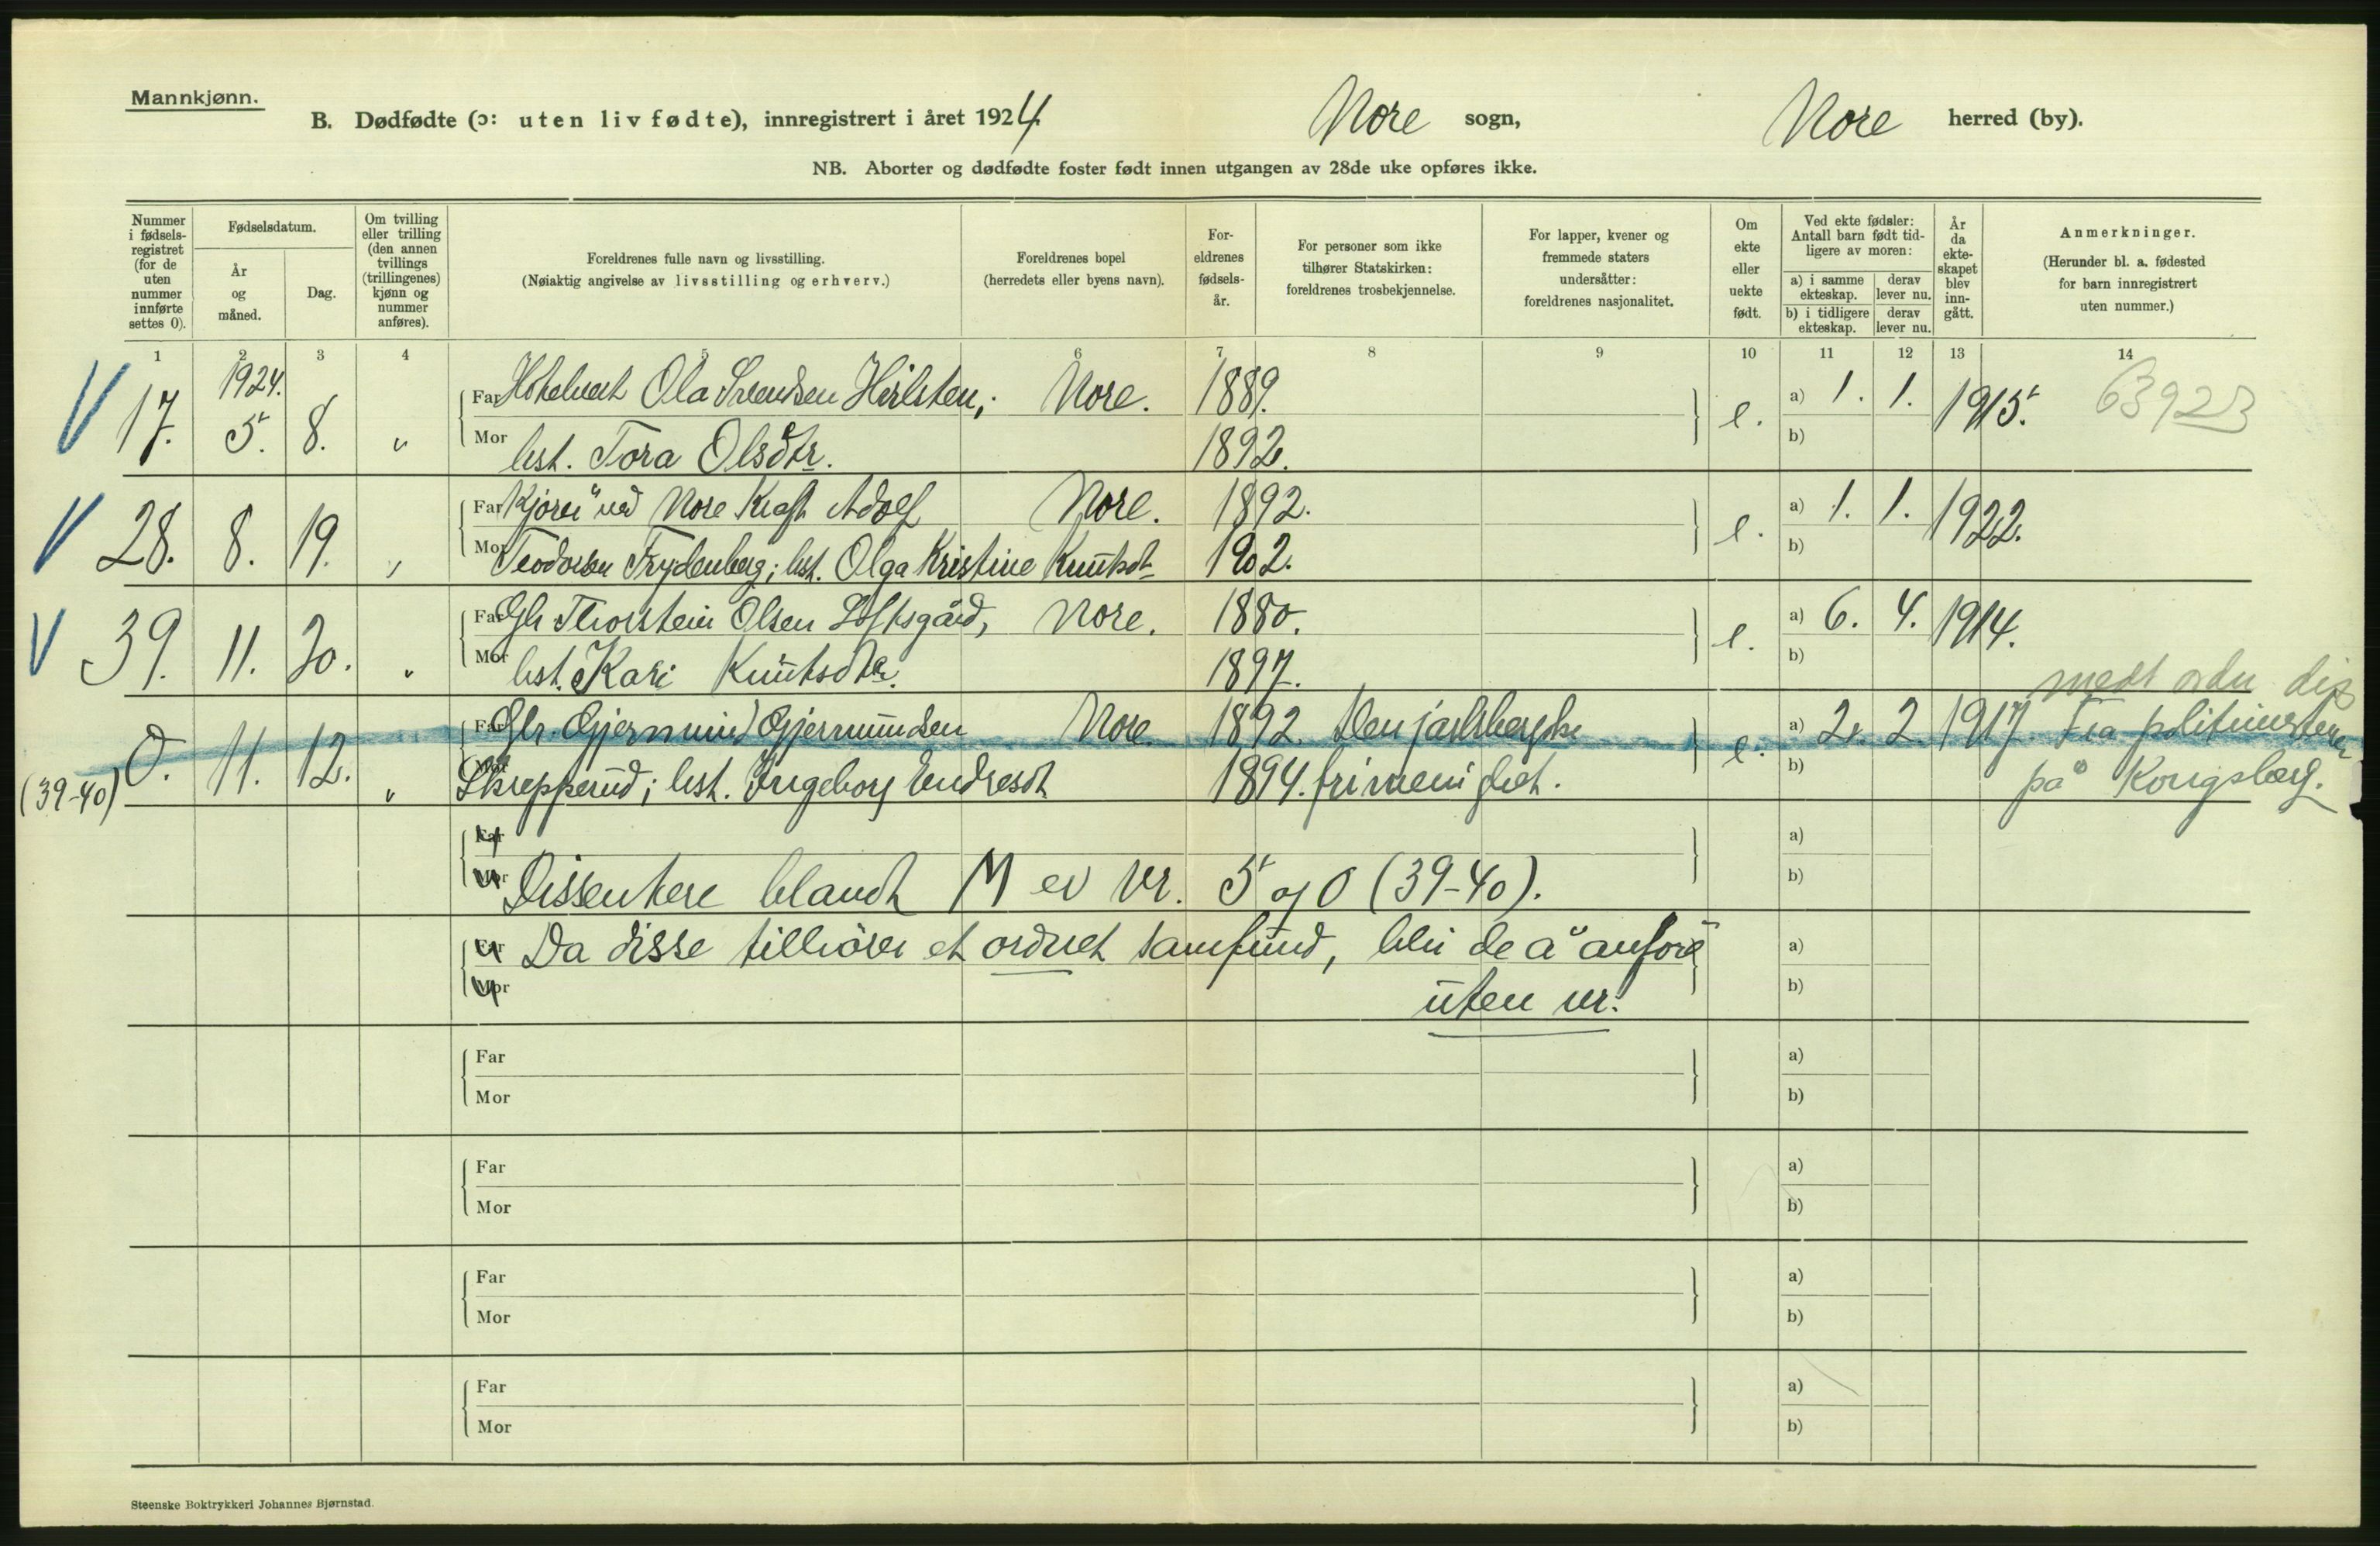 Mannkjønn.
B. Dødfødte (ɔ: uten liv fødte), innregistrert i året 1924. Nore sogn, Nore herred (by).
NB. Aborter og dødfødte foster født innen utgangen av 28de uke opføres ikke.
Nummer i fødsels-registret (for de uten nummer innførte settes 0).
Fødselsdatum.
År og måned.
Dag.
Om tvilling eller trilling (den annen tvillings (trillingenes) kjønn og nummer anføres).
Foreldrenes fulle navn og livsstilling.
(Nøiaktig angivelse av livsstilling og erhverv.)
Foreldrenes bopel
(herredets eller byens navn).
For-eldrenes fødsels-år.
For personer som ikke tilhører Statskirken: foreldrenes trosbekjennelse.
For lapper, kvener og fremmede staters undersåtter: foreldrenes nasjonalitet.
Om ekte eller uekte født.
Ved ekte fødsler: Antall barn født tid-ligere av moren:
a) i samme ekteskap. derav lever nu.
b) i tidligere ekteskap. derav lever nu.
År da ekte-skapet blev inn-gått.
Anmerkninger.
(Herunder bl. a. fødested for barn innregistrert uten nummer.)
1 2 3 4 5 6 7 8 9 10 11 12 13 14
V 17. 1924. 5. 8. " Far Ola Svendsen Nore. 1889. e. a) 1. 1. 1915. 63923
Mor hst. Tora Olsdtr. 1892. b)
V 28. 8. 19. " Far Kjører ved Nore Kraft Adolf Nore. 1892. e. a) 1. 1. 1922.
Mor Teodorsen Frydenberg; hst. Olga Kristine Knutsdt 1902. b)
V 39. 11. 20. " Far Gbr Thorstein Olsen Loftsgård, Nore. 1880. e. a) 6. 4. 1914.
Mor hst. Kari Knutsdtr. 1897. b)
medt ordn dis
0. 11. 12. " Far Gbr. Gjermund Gjermundsen Nore. 1892. Den jarlsbergske e. a) 2. 2. 1917. Fra politimesteren
(39-40) Mor Skrepperud; hst. Ingeborg Endresdt 1894. frimenighet. b) på Kongsberg.
Far a)
Mor Dissentere blandt M er nr. 5 og 0 (39-40). b)
Far Da disse tilhører et ordnet samfund, blir de å anføre a)
Mor uten nr. b)
Far a)
Mor b)
Far a)
Mor b)
Far a)
Mor b)
Far a)
Mor b)
Steenske Boktrykkeri Johannes Bjørnstad.